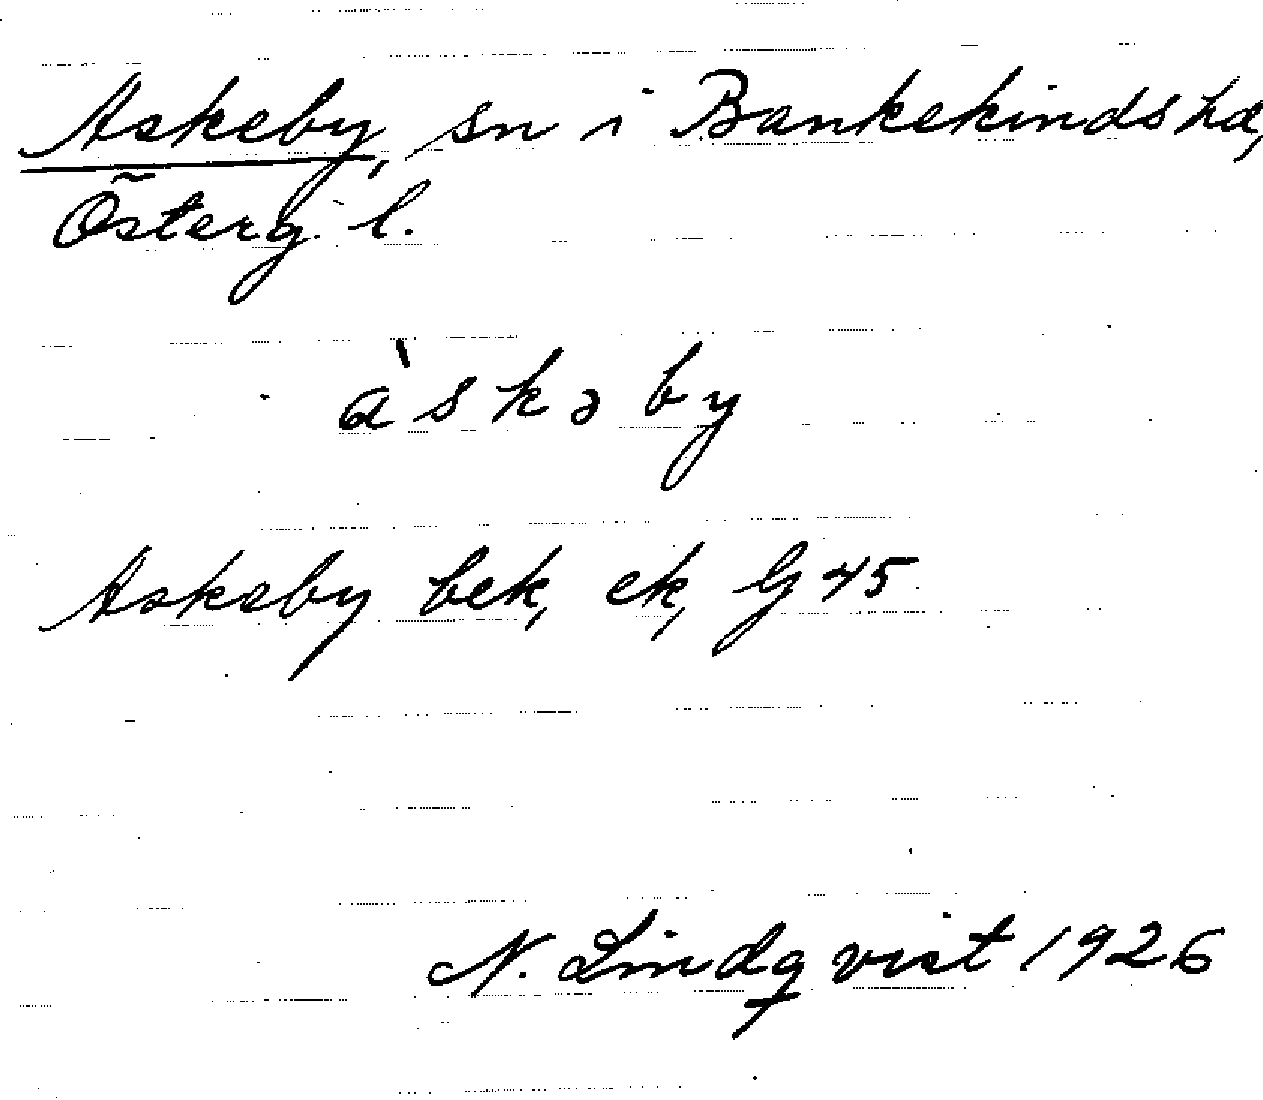 Askeby, sn i Bankekinds hd,
Österg. l.
àskəby
Askeby bek, ek, G 45
N. Lindqvist 1926